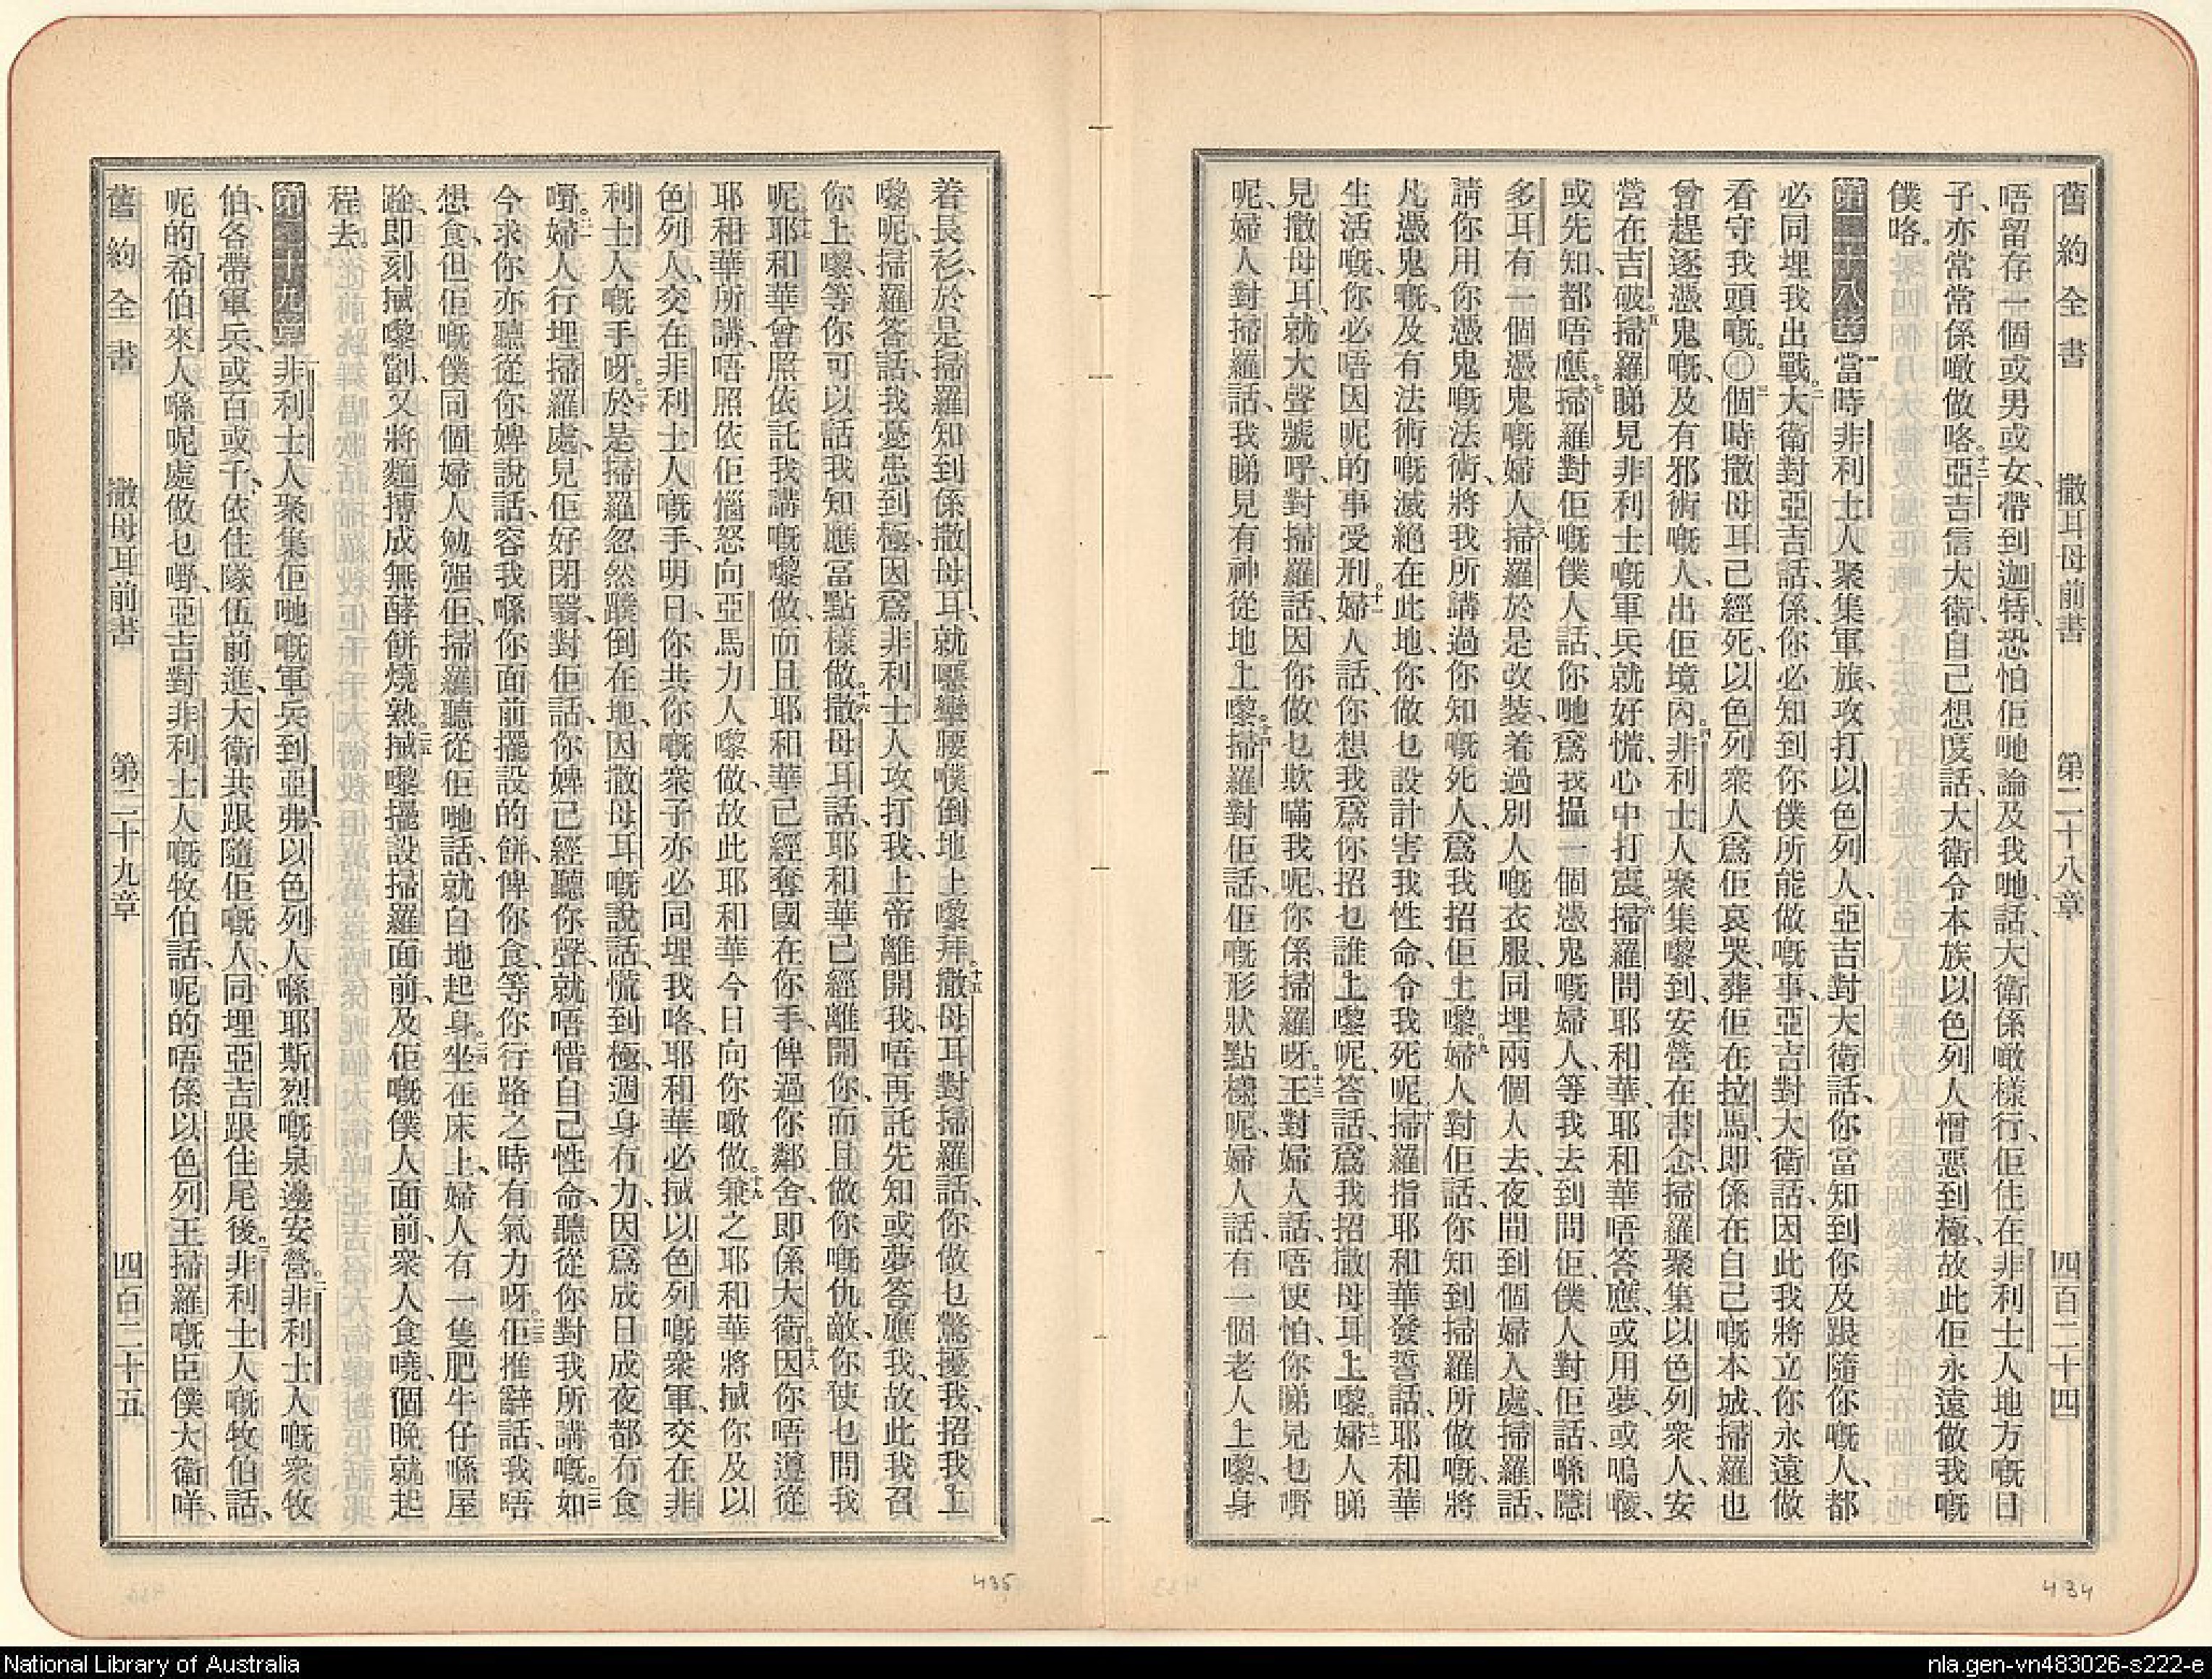 舊約全書 撒耳母前書 第二十八章 四百二十四
唔留存一個或男或女、帶到迦特、恐怕佢哋論及我哋、話、大衛係噉樣行、佢住在非利士人地方嘅日
子、亦常常係噉做咯。十二亞吉信大衛、自己想度話、大衛令本族以色列人憎惡到極、故此佢永遠做我嘅
僕咯。
第二十八章 一當時非利士人聚集軍旅、攻打以色列人、亞吉對大衛話、你當知到你及跟隨你嘅人、都
必同埋我出戰。二大衛對亞吉話、係、你必知到你僕所能做嘅事、亞吉對大衛話、因此我將立你永遠做
看守我頭嘅。〇三個時撒母耳已經死、以色列衆人爲佢哀哭、葬佢在拉馬、即係在自己嘅本城、掃羅也
曾趕逐憑鬼嘅、及有邪術嘅人、出佢境內。四非利士人聚集嚟到、安營在書念、掃羅聚集以色列衆人、安
營在吉破。五掃羅睇見非利士嘅軍兵就好慌、心中打震。六掃羅問耶和華、耶和華唔答應、或用夢、或嗚㖔、
或先知、都唔應。七掃羅對佢嘅僕人話、你哋爲我搵一個憑鬼嘅婦人、等我去到問佢、僕人對佢話、喺隱
多耳有一個憑鬼嘅婦人。八掃羅於是改裝、着過別人嘅衣服、同埋兩個人去、夜間到個婦人處、掃羅話、
請你用你憑鬼嘅法術、將我所講過你知嘅死人、爲我招佢上嚟。九婦人對佢話、你知到掃羅所做嘅、將
凡憑鬼嘅、及有法術嘅滅絕在此地、你做乜設計害我性命、令我死呢。十掃羅指耶和華發誓話、耶和華
生活嘅、你必唔因呢的事受刑。十一婦人話、你想我爲你招乜誰上嚟呢、答話、爲我招撒母耳上嚟。十二婦人睇
見撒母耳、就大聲號呼、對掃羅話、因你做乜欺瞞我呢、你係掃羅呀。十三王對婦人話、唔使怕、你睇見乜嘢
呢、婦人對掃羅話、我睇見有神從地上嚟。十四掃羅對佢話、佢嘅形狀點樣呢、婦人話、有一個老人上嚟、身
着長衫、於是掃羅知到係撒母耳、就嚟攣腰㒒倒地上嚟拜。十五撒母耳對掃羅話、你做乜驚擾我、招我上
嚟呢、掃羅答話、我憂患到極、因爲非利士人攻打我、上帝離開我、唔再託先知或夢答應我、故此我召
你上嚟、等你可以話我知應當點樣做。十六撒母耳話、耶和華已經離開你、而且做你嘅仇敵、你使乜問我
呢。十七耶和華曾照依託我講嘅嚟做、而且耶和華已經奪國在你手、俾過你鄰舍、即係大衛。十八因你唔遵從
耶和華所講、唔照依佢惱怒向亞馬力人嚟做、故此耶和華今日向你噉做。十九兼之耶和華將搣你及以
色列人、交在非利士人嘅手、明日、你共你嘅衆子亦必同埋我咯、耶和華必搣以色列嘅衆軍、交在非
利士人嘅手呀。二十於是掃羅忽然躓倒在地、因撒母耳嘅說話、慌到極、週身冇力、因爲成日成夜都冇食
嘢。二一婦人行埋掃羅處、見佢好閉翳、對佢話、你婢已經聽你聲、就唔惜自己性命、聽從你對我所講嘅。二二如
今求你亦聽從你婢說話、容我喺你面前擺設的餅、俾你食、等你行路之時有氣力呀。二三佢推辭話、我唔
想食、但佢嘅僕同個婦人勉强佢、掃羅聽從佢哋話、就自地起身。二四坐在床上、婦人有一隻肥牛仔喺屋
跄、即刻搣嚟劏、又將麵搏成無酵餅燒熟。二五搣嚟擺設掃羅面前、及佢嘅僕人面前、衆人食嘵、個晚就起
程去。
第二十九章 一非利士人聚集佢哋嘅軍兵到亞弗、以色列人喺耶斯烈嘅泉邊安營。二非利士人嘅衆牧
伯、各帶軍兵、或百或千、依住隊伍前進、大衛共跟隨佢嘅人、同埋亞吉跟住尾後。三非利士人嘅牧伯話、
呢的希伯來人喺呢處做乜嘢、亞吉對非利士人嘅牧伯話、呢的唔係以色列王掃羅嘅臣僕大衛咩、
舊約全書 撒母耳前書 第二十九章 四百二十五
435
434
National Library of Australia
nla.gen-vn483026-s222-e